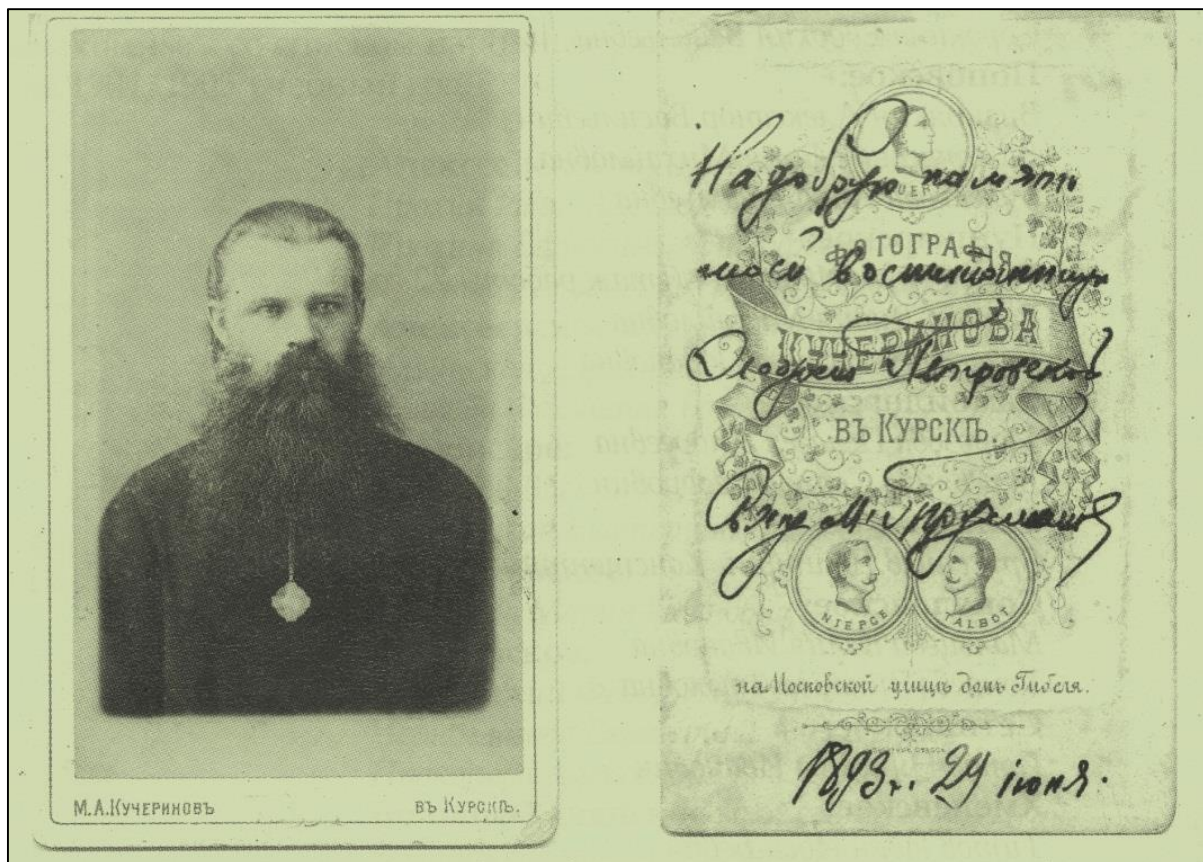 М.А.Кучериновъ
въ Курскѣ.
На добрую память
ФОТОГРАФІЯ
моей воспитанницѣ
КУЧЕРИНОВА
Петровской
ВЪ КУРСКѢ.
NIEPCE
TALBOT
на Московской улицѣ домъ Гибеля.
1893 г. 29 іюня.